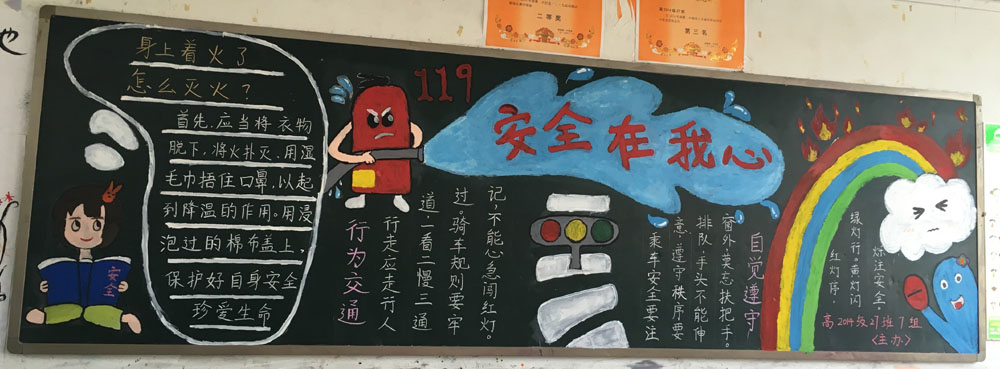 二等奖
第三名
身上着火了
怎么灭火？
首先,应当将衣物
脱下,将火扑灭,用湿
毛巾捂住口鼻,以起
到降温的作用。用浸
泡过的棉布盖上,
保护好自身安全
珍爱生命
安全
119
安全在我心
行为交通
行走应走行人
道，一看二慢三通
过。骑车规则要牢
记，不能心急闯红灯。
自觉遵守
乘车安全要注
意，遵守秩序要
排队，手头不能伸
窗外莫忘扶把手。
红灯停，
绿灯行。黄灯闪
烁注安全。
高2014级27班7组
〈主办〉